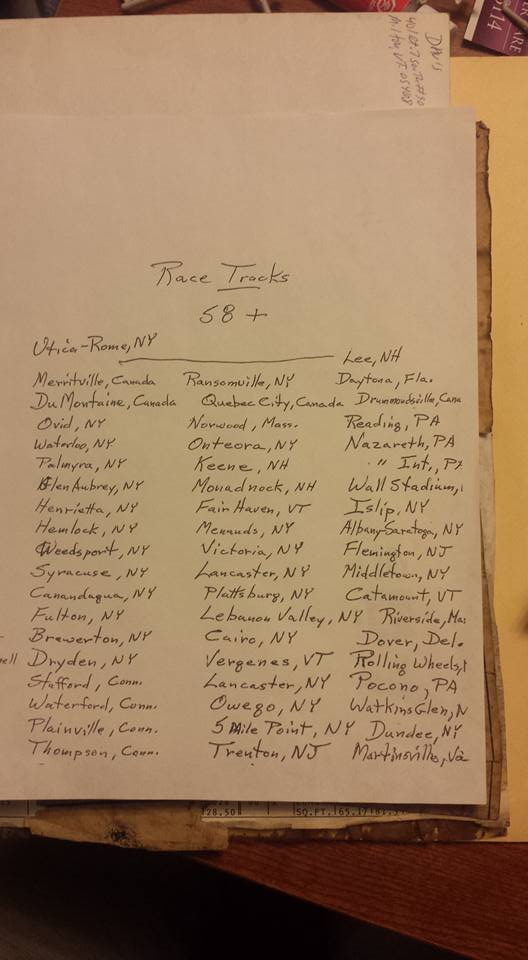 Davis
Race Tracks
58 +
Utica-Rome, NY
Lee, NH
Merrittville, Canada Ransomville, NY Daytona, Fla.
DuMontaine, Canada Quebec City, Canada Drummondsville, Cana
Ovid, NY Norwood, Mass. Reading, PA
Waterloo, NY Onteora, NY Nazareth, PA
Palmyra, NY Keene, NH " Int., PA
Glen Aubrey, NY Monadnock, NH Wall Stadium,
Henrietta, NY Fair Haven, VT Islip, NY
Hemlock, NY Menands, NY Albany-Saratoga, NY
Weedsport, NY Victoria, NY Flemington, NJ
Syracuse, NY Lancaster, NY Middletown, NY
Canandagua, NY Plattsburg, NY Catamount, VT
Fulton, NY Lebanon Valley, NY Riverside, Mas
Brewerton, NY Cairo, NY Dover, Del.
ell Dryden, NY Vergenes, VT Rolling Wheels,
Stafford, Conn. Lancaster, NY Pocono, PA
Waterford, Conn. Owego, NY Watkins Glen, N
Plainville, Conn. 5 Mile Point, NY Dundee, NY
Thompson, Conn. Trenton, NJ Martinsville, Va
28.50 SQ.FT.